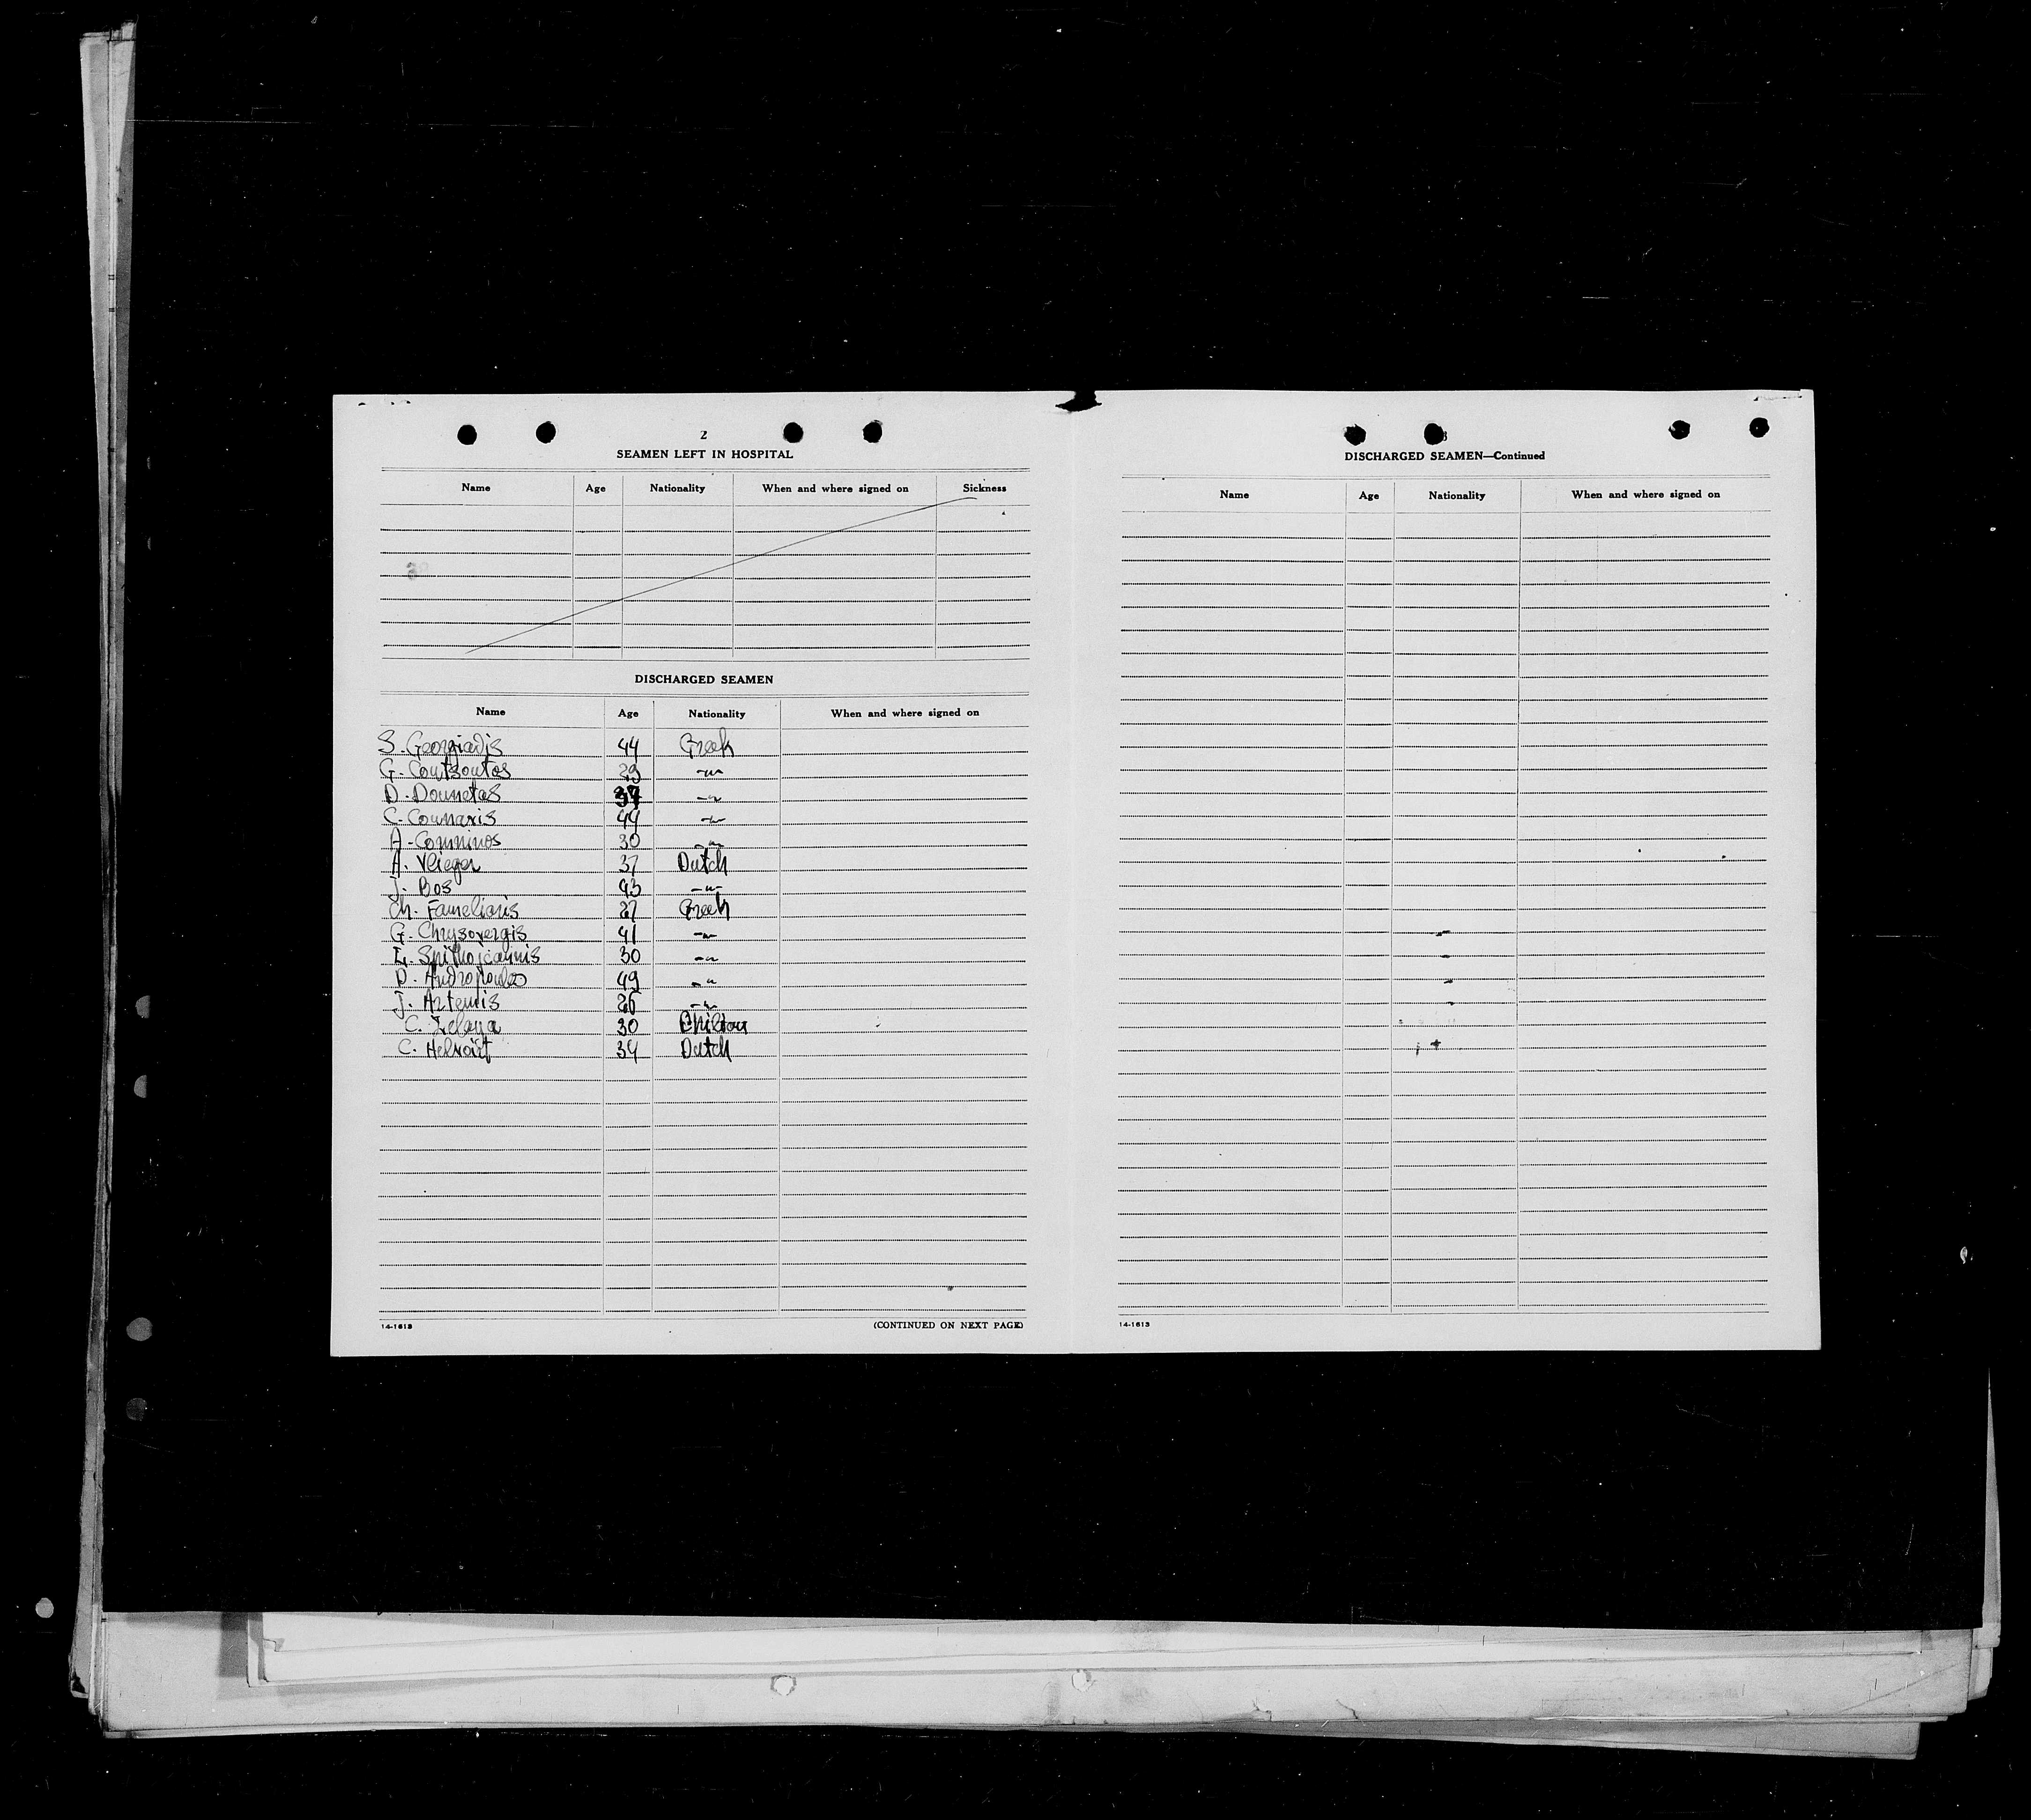 2
SEAMEN LEFT IN HOSPITAL
Name Age Nationality When and where signed on Sickness
DISCHARGED SEAMEN
Name Age Nationality When and where signed on
S. Georgiadis 44 Greek
G. Coutsoutos 29 -"-
D. Dounetas -"-
C. Counaris 44 -"-
A. Comninos 30 -"-
A. Vlieger 37 Dutch
J. Bos 43 -"-
Ch. Famelians 27 Greek
G. Chrysovergis 41 -"-
30 -"-
D. 49 -"-
J. Artemis 26 -"-
C. Zelaya 30
C. Helvoirt 34 Dutch
14-1613 (CONTINUED ON NEXT PAGE)
3
DISCHARGED SEAMEN—Continued
Name Age Nationality When and where signed on
14-1613